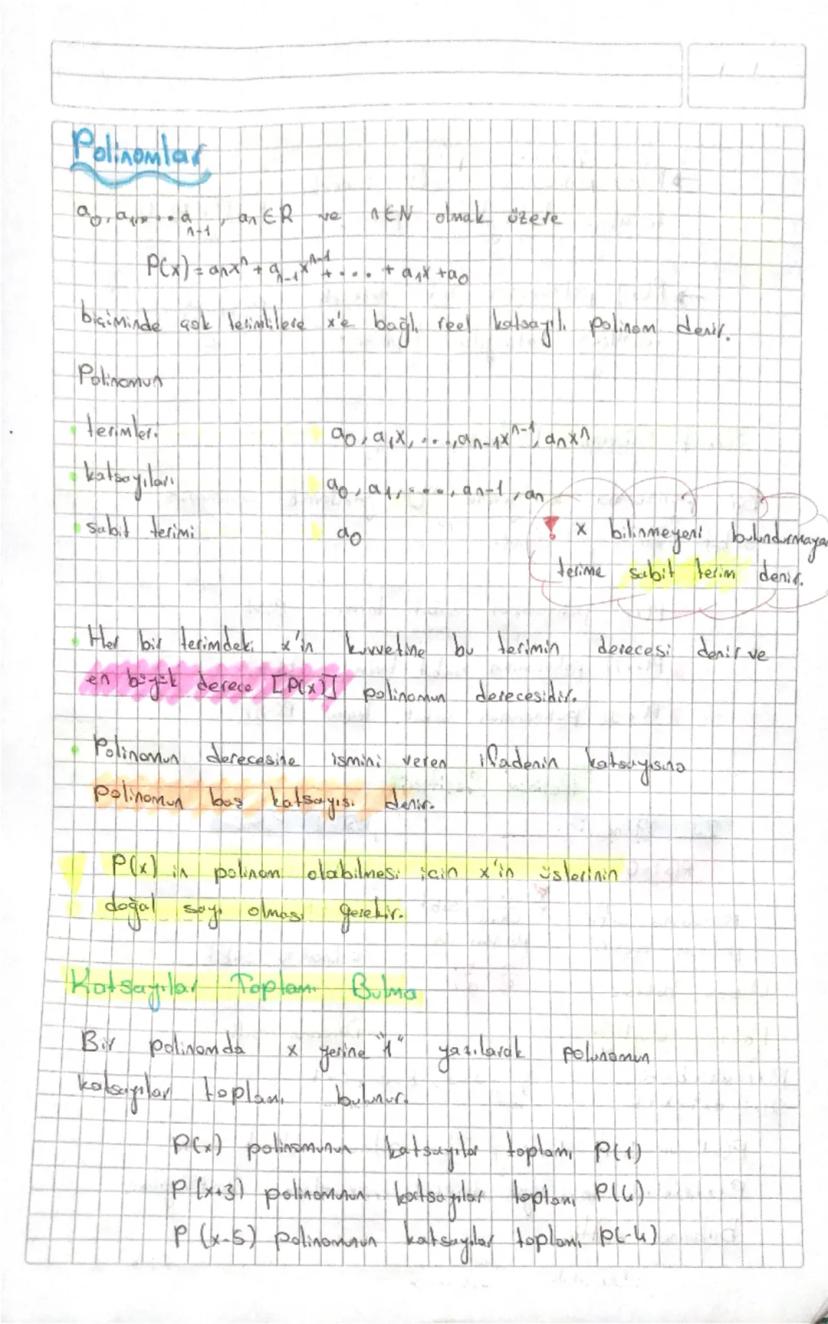 Polinomlar
a₀, a₁, ... a_{n-1}, aₙ ∈ R ve n ∈ N olmak üzere
P(x) = aₙxⁿ + a_{n-1}xⁿ⁻¹ + .... + a₁x + a₀
biçiminde çok terimlilere x'e bağlı reel katsayılı polinom denir.
Polinomun
• terimleri a₀, a₁x, ..., a_{n-1}xⁿ⁻¹, aₙxⁿ
• katsayıları a₀, a₁, ..., a_{n-1}, aₙ
• sabit terimi a₀
! x bilinmeyeni bulundurmayan
terime sabit terim denir.
• Her bir terimdeki x'in kuvvetine bu terimin derecesi denir ve
en büyük derece [P(x)] polinomun derecesidir.
• Polinomun derecesine ismini veren ifadenin katsayısına
polinomun baş katsayısı denir.
! P(x) in polinom olabilmesi için x'in üslerinin
doğal sayı olması gerekir.
Katsayılar Toplamı Bulma
Bir polinomda x yerine "1" yazılarak polinomun
katsayılar toplamı bulunur.
P(x) polinomunun katsayılar toplamı P(1)
P(x+3) polinomunun katsayılar toplamı P(4)
P(x-5) polinomunun katsayılar toplamı P(-4)